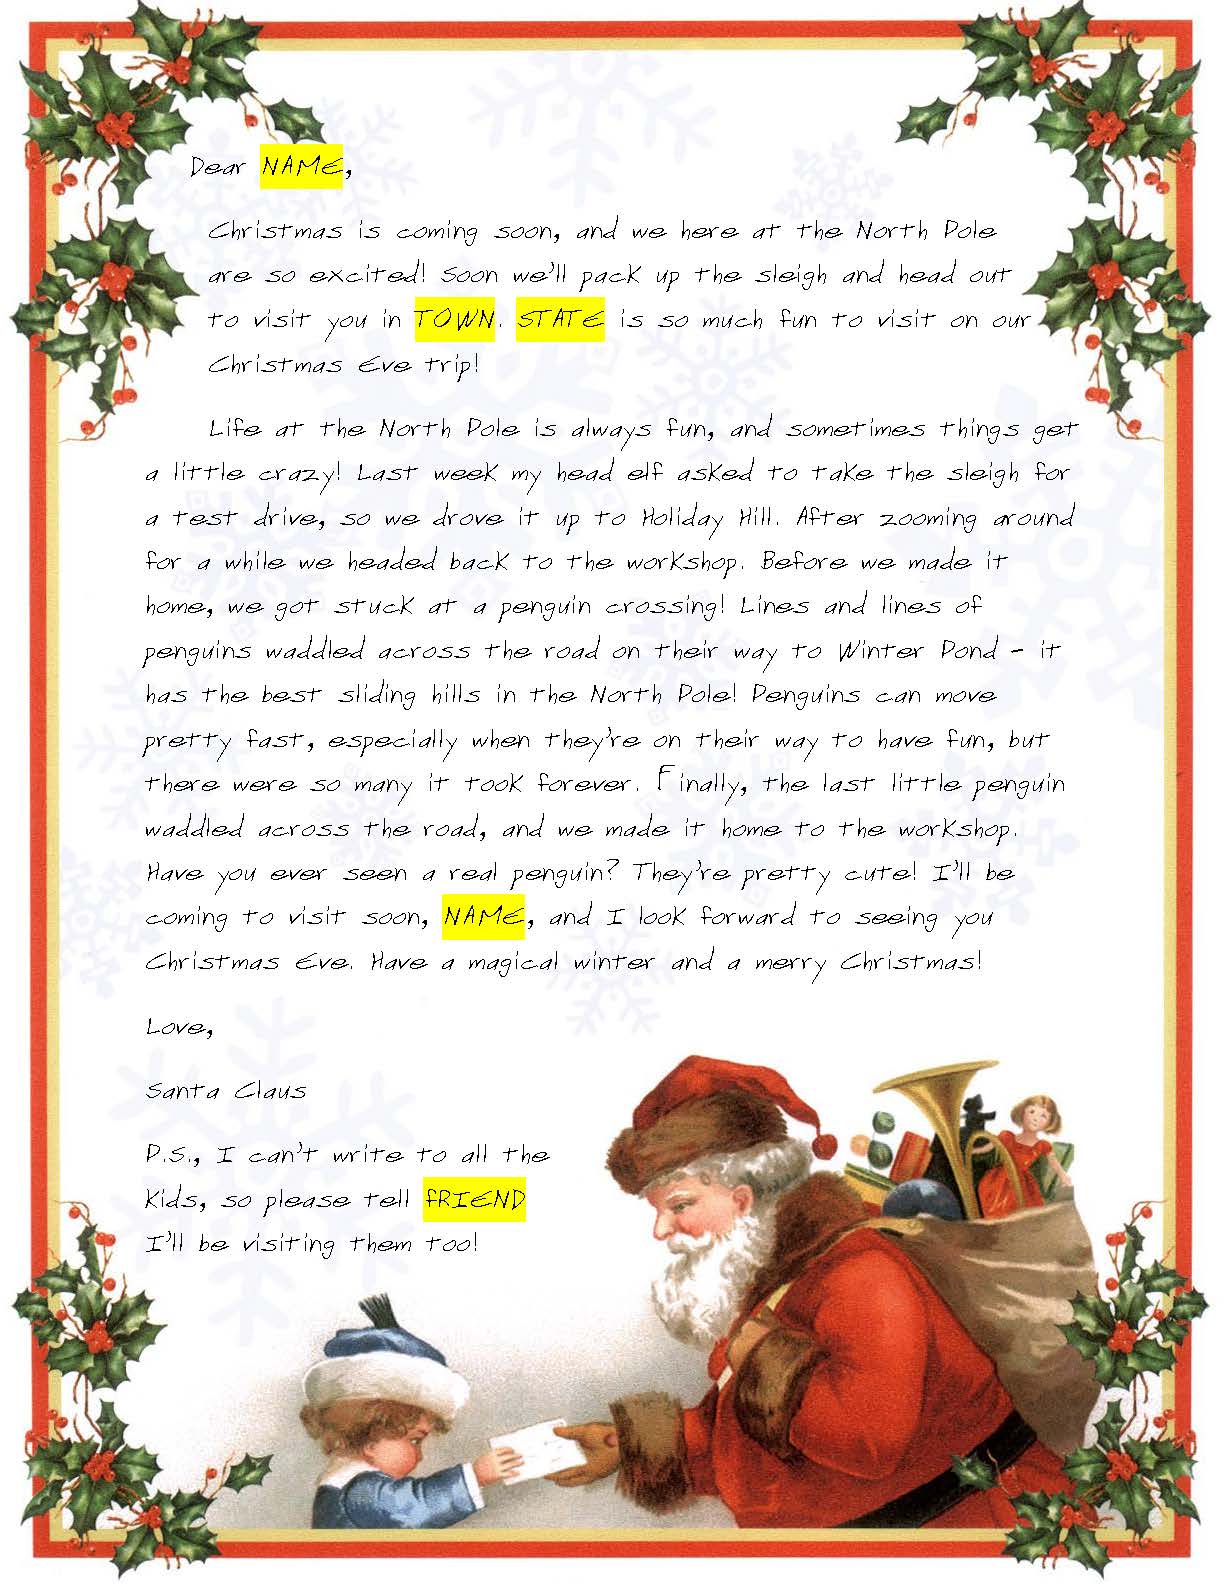 Dear NAME,
Christmas is coming soon, and we here at the North Pole
are so excited! Soon we'll pack up the sleigh and head out
to visit you in TOWN. STATE is so much fun to visit on our
Christmas Eve trip!
Life at the North Pole is always fun, and sometimes things get
a little crazy! Last week my head elf asked to take the sleigh for
a test drive, so we drove it up to Holiday Hill. After zooming around
for a while we headed back to the workshop. Before we made it
home, we got stuck at a penguin crossing! Lines and lines of
penguins waddled across the road on their way to Winter Pond - it
has the best sliding hills in the North Pole! Penguins can move
pretty fast, especially when they're on their way to have fun, but
there were so many it took forever. Finally, the last little penguin
waddled across the road, and we made it home to the workshop.
Have you ever seen a real penguin? They're pretty cute! I'll be
coming to visit soon, NAME, and I look forward to seeing you
Christmas Eve. Have a magical winter and a merry Christmas!
Love,
Santa Claus
P.S., I can't write to all the
kids, so please tell fRIEND
I'll be visiting them too!